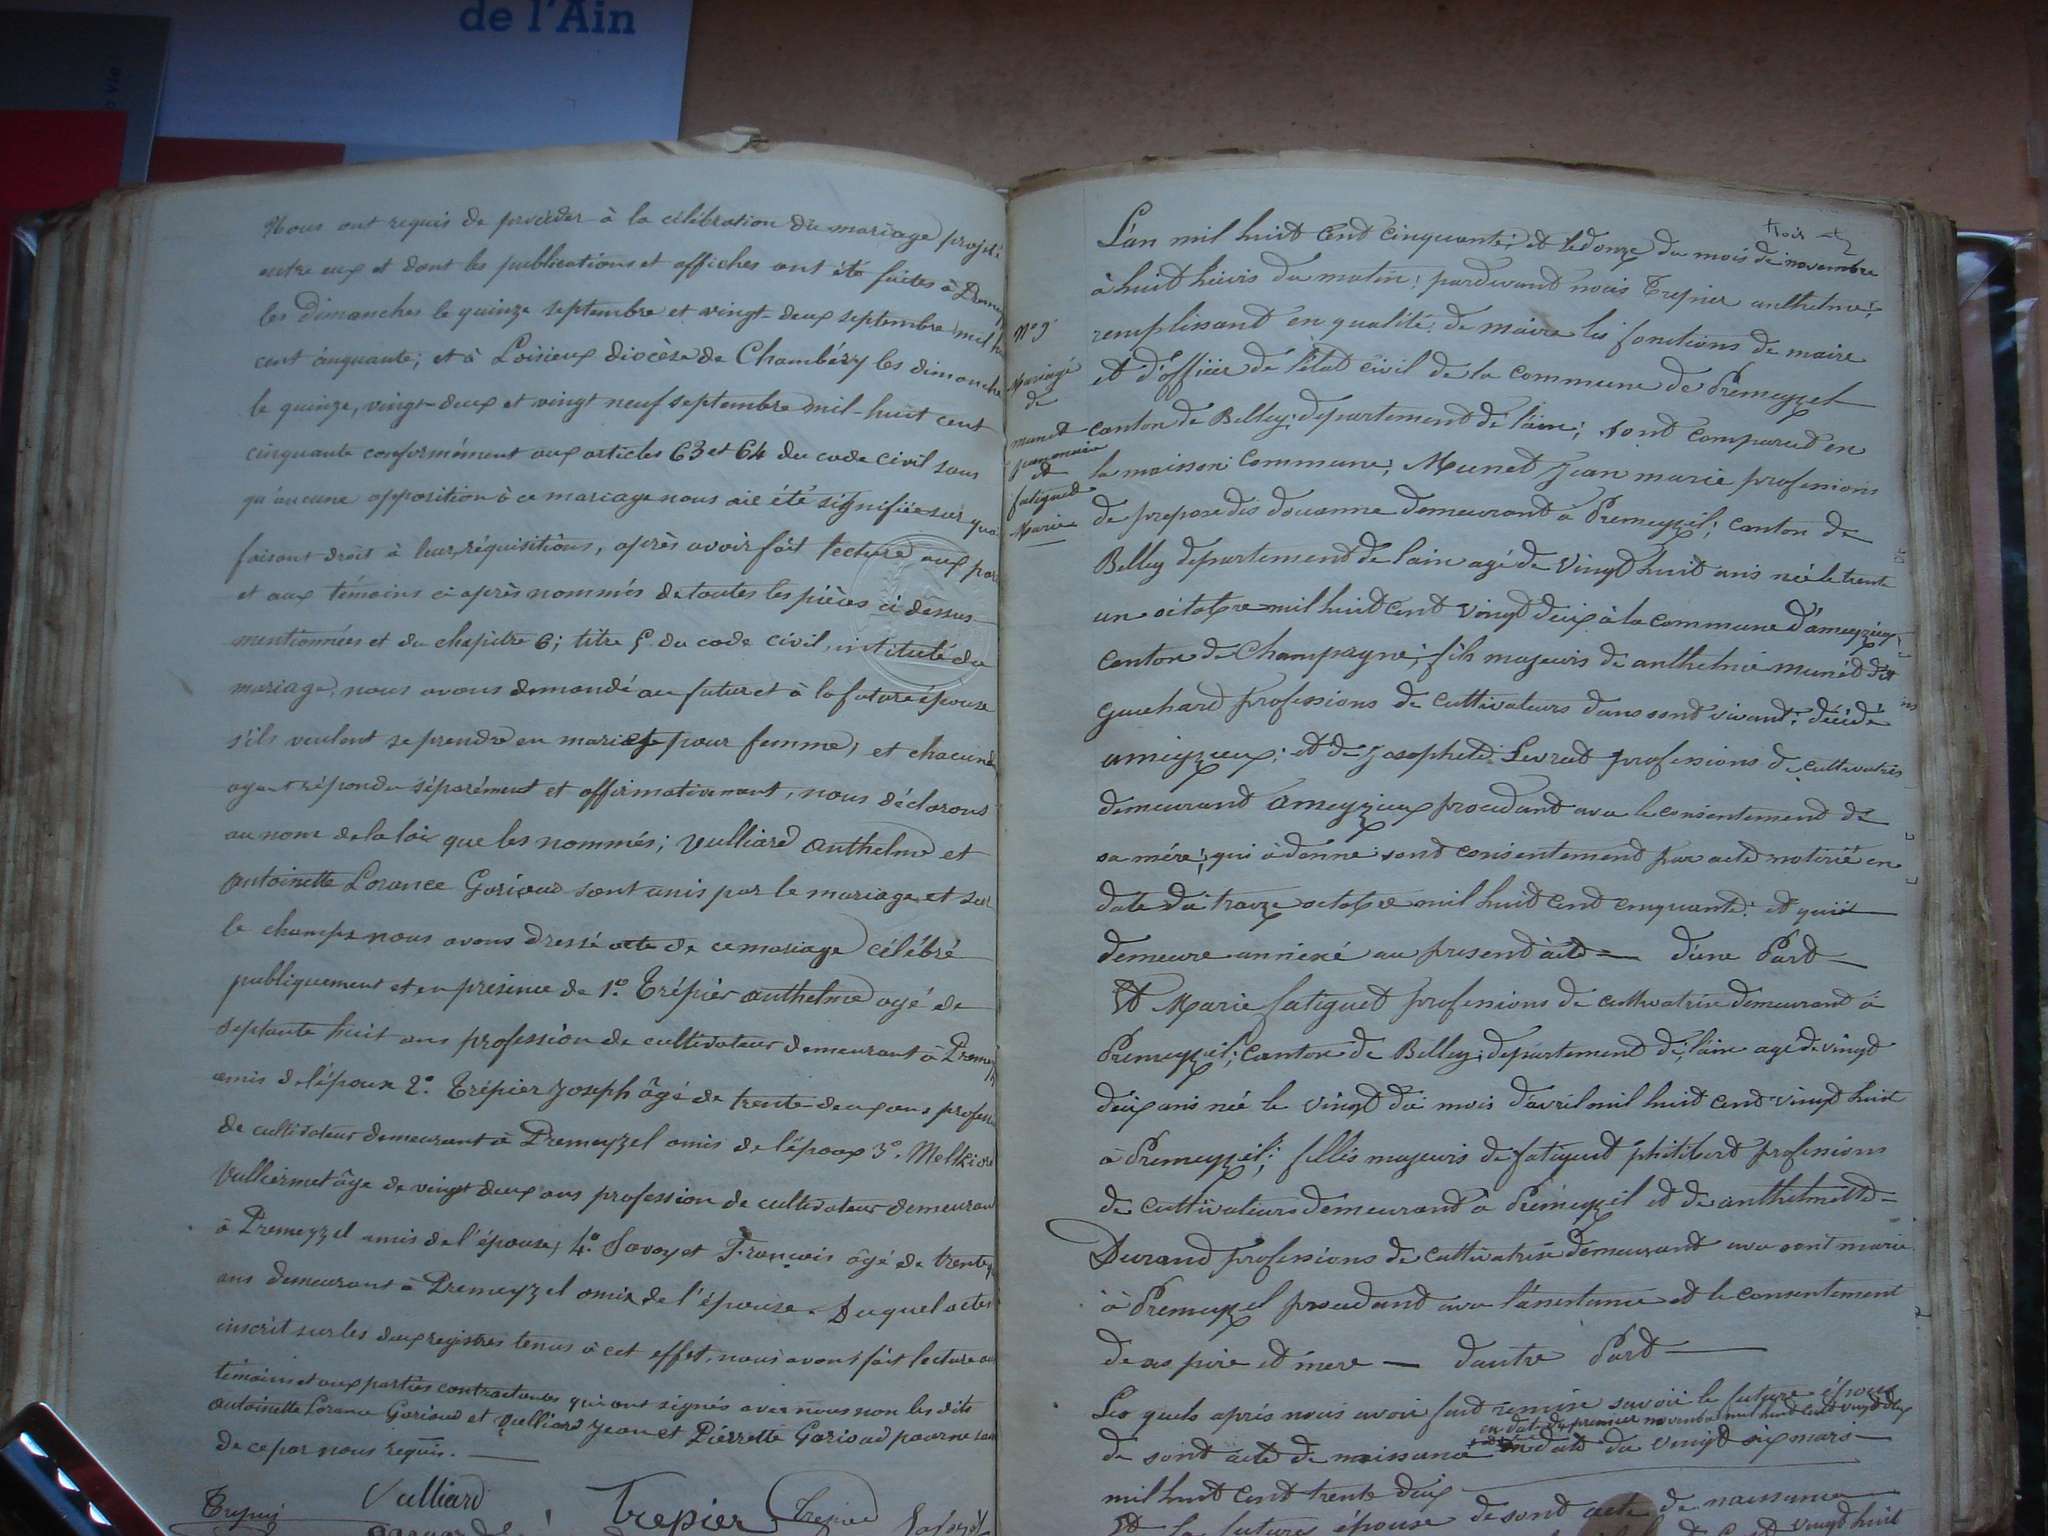 de l'Ain
Nous ont requis de procéder à la célébration du mariage projeté
entre eux et dont les publications et affiches ont été faites à
les dimanches le quinze septembre et vingt-deux septembre mil h
cent cinquante; et à Loisieux diocèse de Chambéry les dimanche
le quinze, vingt-deux et vingt neuf septembre mil-huit cent
cinquante conformément aux articles 63 et 64 du code civil sans
qu'aucune opposition à ce mariage nous aie été signifiée sur quoi
faisant droit à leur réquisitions, après avoir fait lecture aux par
et aux témoins ci après nommés de toutes les pièces ci dessus
mentionnées et du chapitre 6; titre 5 du code civil, intitulé du
mariage, nous avons demandé au futur et à la future épouse
s'ils veulent se prendre en mari et pour femme, et chacun d
ayant répondu séparément et affirmativement, nous déclarons
au nom de la loi que les nommés; Vulliard Anthelme et
Antoinette Lorance Gorioud sont unis par le mariage et sur
le champs nous avons dressé acte de ce mariage célébré
publiquement et en présence de 1.º Trépier Anthelme agé de
septante huit ans profession de cultivateur demeurant à Premeyz
amis de l'époux 2.º Trépier Joseph âgé de trente-deux ans profess
de cultivateur demeurant à Premeyzel amis de l'époux 3.º Melkior
Vulliermet âge de vingt deux ans profession de cultivateur demeuran
à Premeyzel amis de l'épouse, 4.º Savoyet François âgé de trente
ans demeurant à Premeyzel amis de l'épouse. Duquel acte
inscrit sur les deux registres tenus à cet effet, nous avons fait lecture aux
témoins et aux parties contractantes qui ont signés avec nous non les dits
Antoinette Lorance Gorioud et Vulliard Jean et Pierrette Gorioud pour ne sa
de ce par nous requis.
Trepier Vulliard Trepier Trepier
N.º 9
Mariage
de
munet
jeanmarie
et
fatigued
Marie
trois
L'an mil huit cent cinquante; et le donze du mois de novembre
à huit heuris du matin; pardevant nous Trepier anthelme;
remplissant en qualité de maire lis fonctions de maire
et d'officier de l'état civil de la commune de Prémeyzel
canton de Belley; département de l'ain; sont comparud en
la maisson commune; Munet Jean marie professions
de prepose dis douanne demeurand à Premeyzil; canton de
Belley departement de lain agé de vingt huit ans née le trente
un octobre mil huit cend vingt deux à la commune d'ameyzieux
canton de Champagne; fils majeurs de anthelme munéd dit
Guichard professions de cultivateurs dans sont vivant; décidé
ameyzieux; et de Josephete Levrad professions de cultivatris
demeurand ameyzieux procedant avec le consentement de
sa mére; qui à donné sont consentement par acte notirié en
date du traize octobre mil huit cent cinquante; et qui
demeure annexé au present acte — d'une Part —
Et Marie fatigued professions de cultivatrise demeurand à
Premeyzil; canton de Belley; département de l'ain agé de vingt
deux ans née le vingt du mois d'avril mil huit cend vingt huit
à Premeyzil; filles majeurs de fatigued philibert professions
de cultivateurs demeurand à Prémeyzil et de anthelmette
Durand professions de cultivatrise demeurand avec sont marie
à Premeyzel procedand avec l'assistance et le consentement
de ses père et mere — dautre Part —
Les quels après nous avoir fait remise savoir le future époux
en date du premier novembre mil huit cent vingt deux
de sont acte de naissance en date du vingt six mars
mil huit cent trente deux
Et la futures épouse de sont acte de naissance
vingt huit